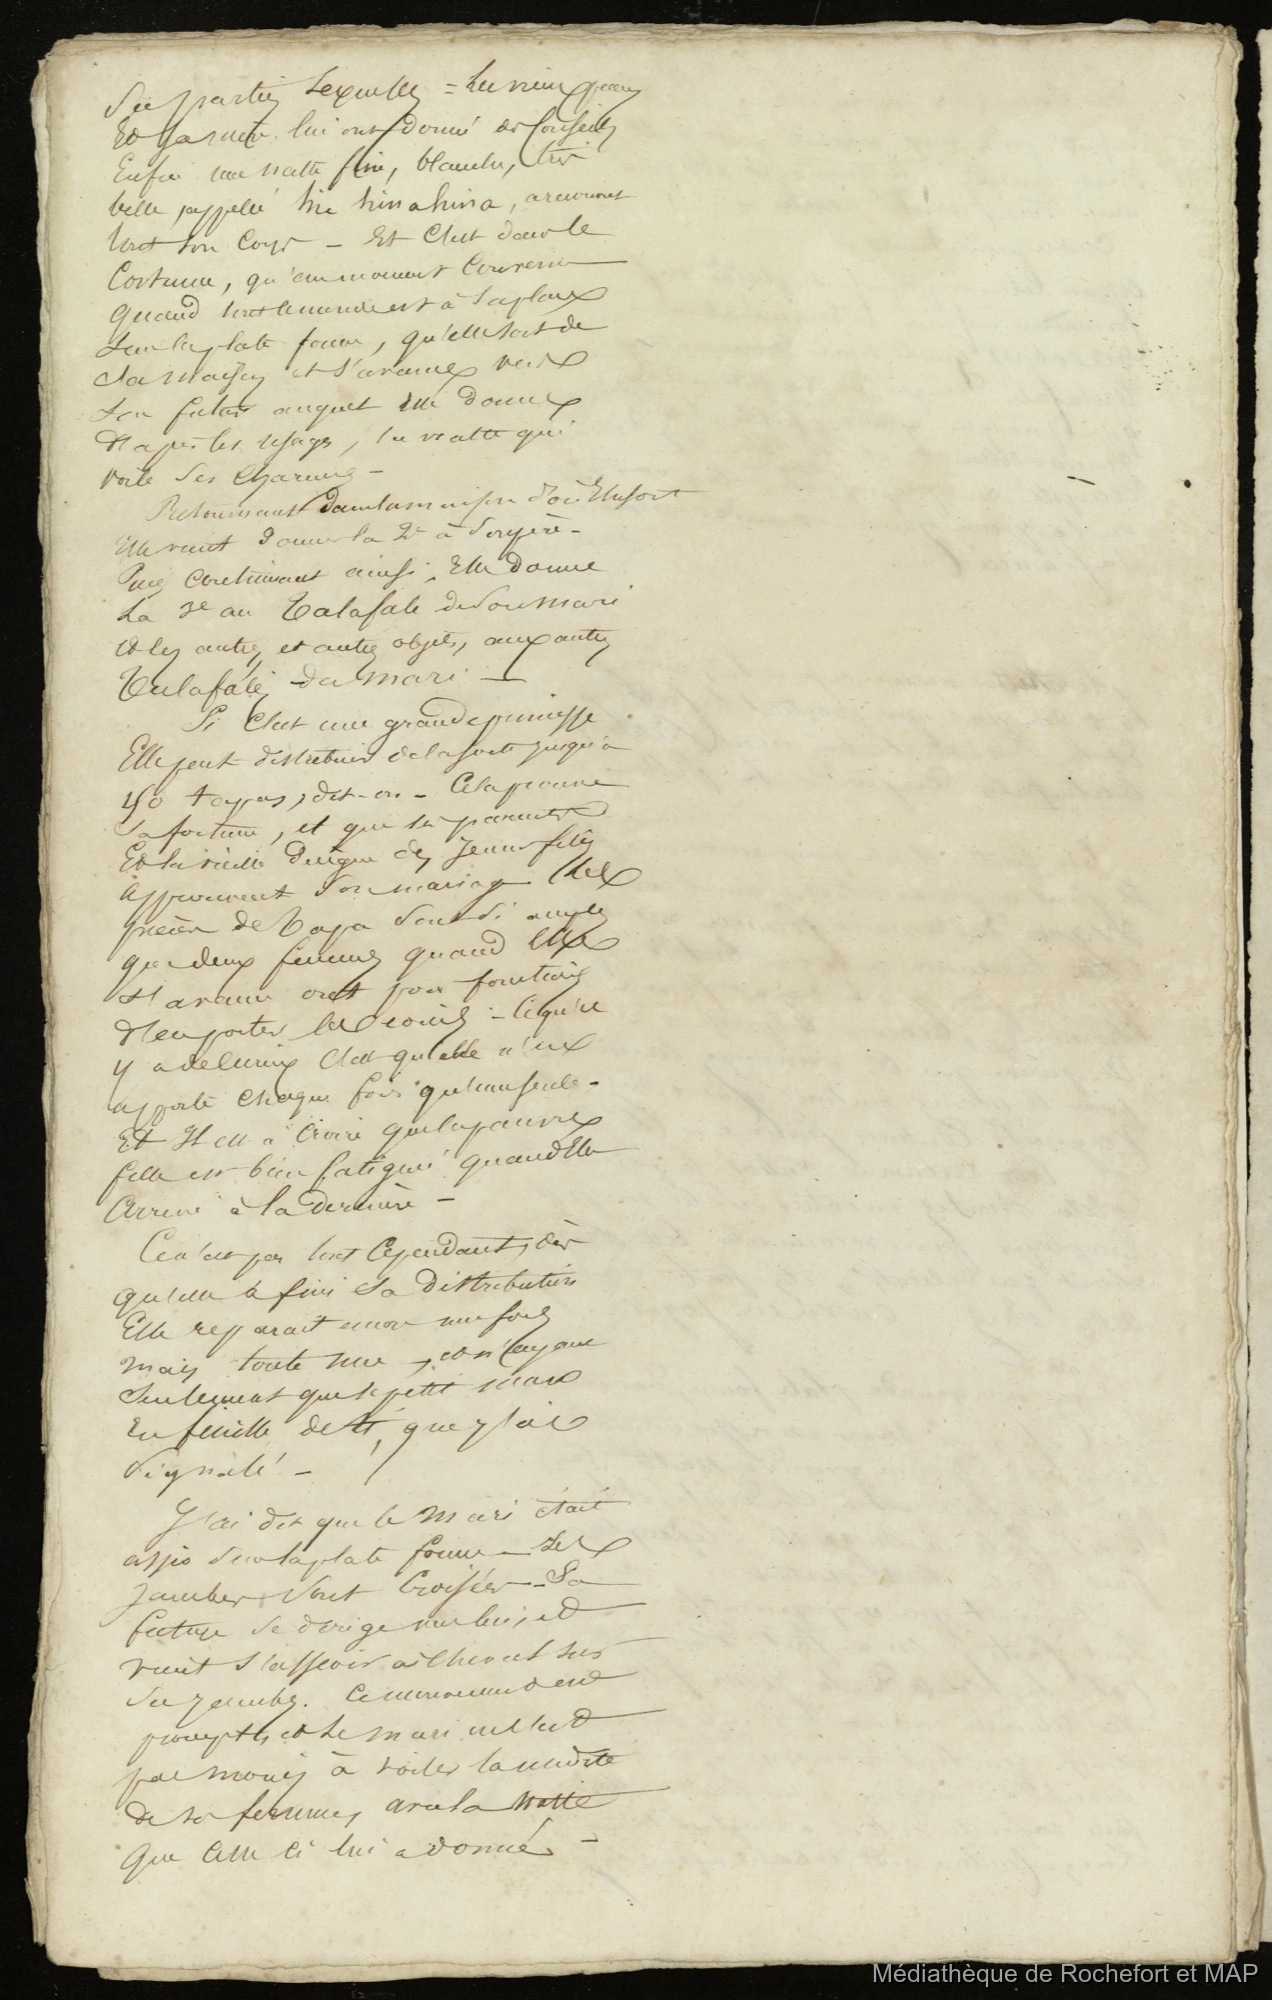 ses parties sexuelles = les vieux
Et sa mère lui ont donné des conseils
Enfin une natte fine, blanche, très
belle, appellée hie hinahina,
tout son corps _ Et c'est dans le
Costume, qu'au moment Convenu
quand tout le monde est à sa place
sur la plate forme, qu'elle sort de
sa maison et s'avance vers
son futur auquel elle donne
d'après les usages, la natte qui
voile ses charmes _
Retournant dans la maison d'où Elle sort
Elle vient donner la 2e à son père _
Puis continuant ainsi, Elle donne
La 3e au Talafale de son mari
et les autres, et autres objets, aux autres
Talafalés du mari _
Si c'est une grande princesse
Elle peut distribuer de la sorte jusqu'à
tapas, dit-on _ Cela prouve
sa fortune, et que ses parents
Et la vieille duègne des jeunes filles
approuvent son mariage Ces
pièces de Tapa sont si amples
que deux femmes quand Elle
s'avance ont pour fonctions
d'en porter les coins _ Ce qu'il
y a de curieux c'est qu'elle n'en
apporte chaque fois qu'une seule _
Et Il est à croire que la pauvre
fille est bien fatiguée quand Elle
arrive à la dernière _
Ce n'est pas tout Cependant, dès
qu'elle a fini sa distribution
Elle reparait encore une fois
mais toute nue, et n'ayant
seulement que le petit maro
En feuille de ti, que j'ai
signalé _
J'ai dit que le Mari était
assis sur la plate forme _ Ses
jambes sont Croisées _ Sa
future se dirige vers lui, et
vient s'asseoir à cheval sur
ses jambes. Ce mouvement est
prompt, et le mari met
pas moins à voiler la nudité
de sa femme, avec la natte
que celle ci lui a donnée _
Médiathèque de Rochefort et MAP